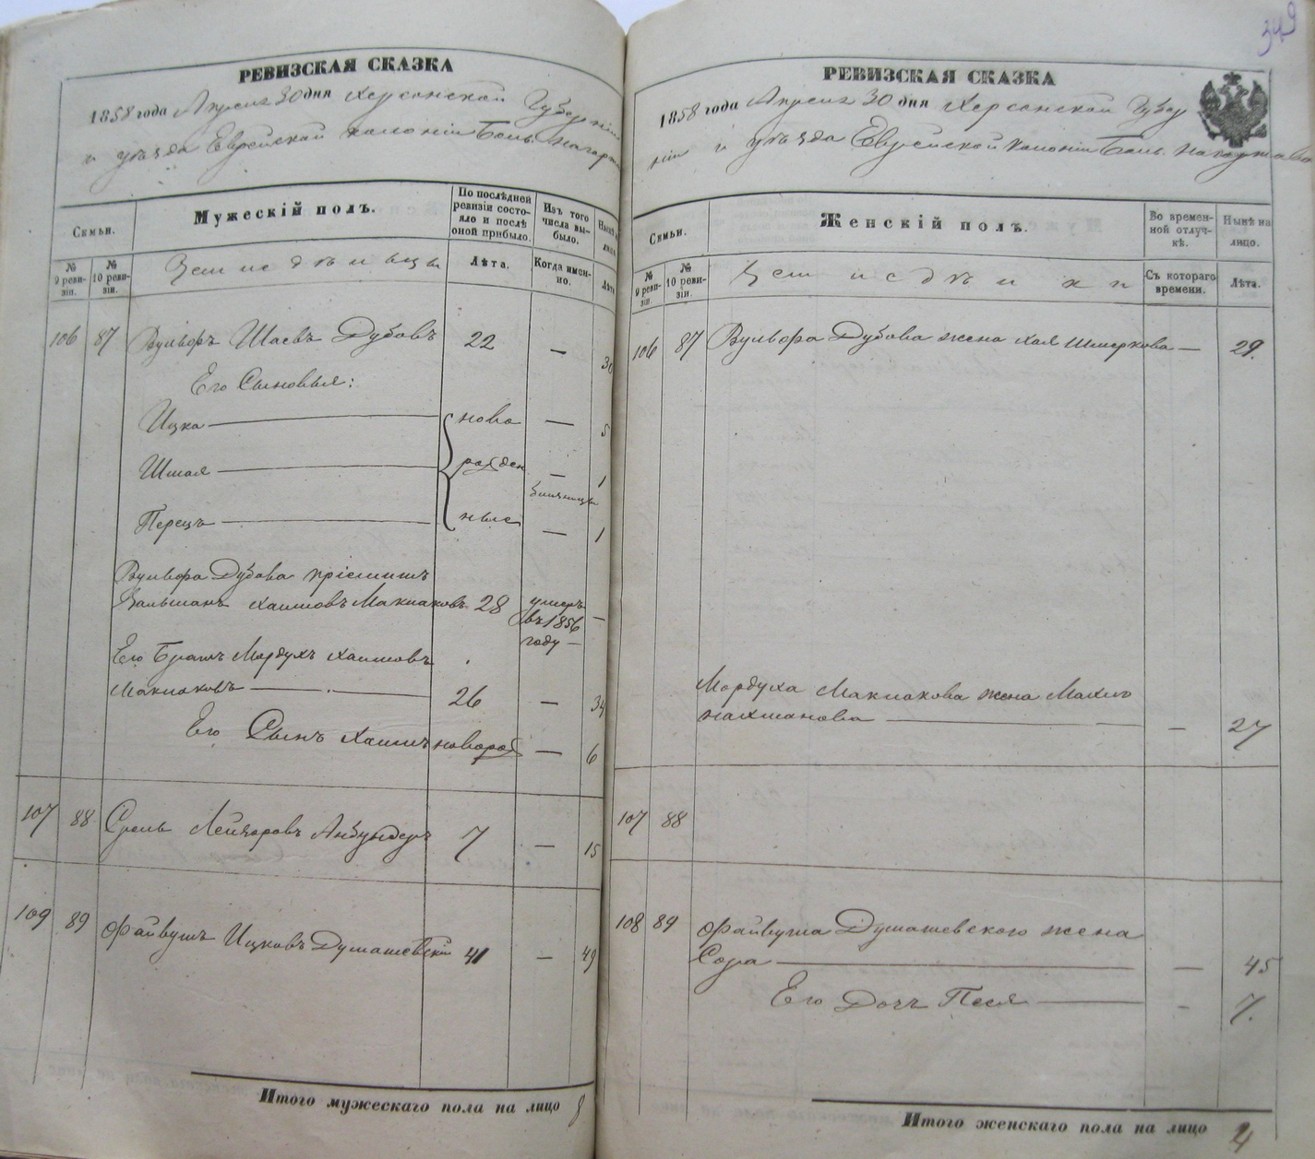 РЕВИЗСКАЯ СКАЗКА
1858 года Апреля 30 дня Херсонской Губерніи
и уѣзда Еврейской колоніи Боль. Нагарт
Мужескій полъ.
Семьи.
По послѣдней ревизіи состояло и послѣ оной прибыло.
Изъ того числа выбыло.
№ 9 ревизіи.
№ 10 ревизіи.
Земледѣльцы
Лѣта.
Когда именно.
Лѣта
106 87 Вульфъ Шаевъ Дубовъ 22 —
Его Сыновья:
Ицка — ново — 5
Шмая — рожден — 1
близнецы
Перецъ — ные — 1
Вульфа Дубова пріемышъ
Залманъ Хаимовъ Маклаковъ 28 умеръ —
въ 1856
году —
Его Братъ Мордухъ Хаимовъ
Маклаковъ — 26 — 34
Его Сынъ Хаимъ новорож — 6
107 88 Срель Лейзеровъ 7 — 15
109 89 Файвушъ Ицковъ Думашевскій 41 — 49
Итого мужескаго пола на лицо 8
349
РЕВИЗСКАЯ СКАЗКА
1858 года Апреля 30 дня Херсонской Губер
ніи и уѣзда Еврейской колоніи Боль. Нагартава
Семьи.
Женскій полъ.
Во временной отлучкѣ.
Нынѣ на лицо.
№ 9 ревизіи.
№ 10 ревизіи.
Земледѣлки
Съ котораго времени.
Лѣта.
106 87 Вульфа Дубова жена Хая Шмеркова — 29.
Мордуха Маклакова жена
Нахманова — — 27
107 88
108 89 Файвуша Думашевского жена
Сора — — 45
Его Дочь Песя — - 7.
Итого женскаго пола на лицо 4